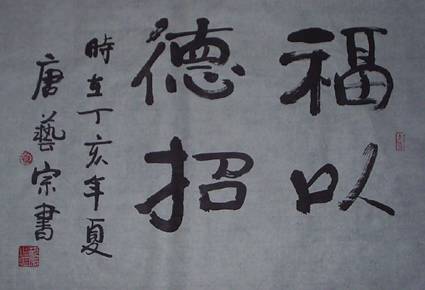 福以
德招
時在丁亥年夏
唐藝宗書